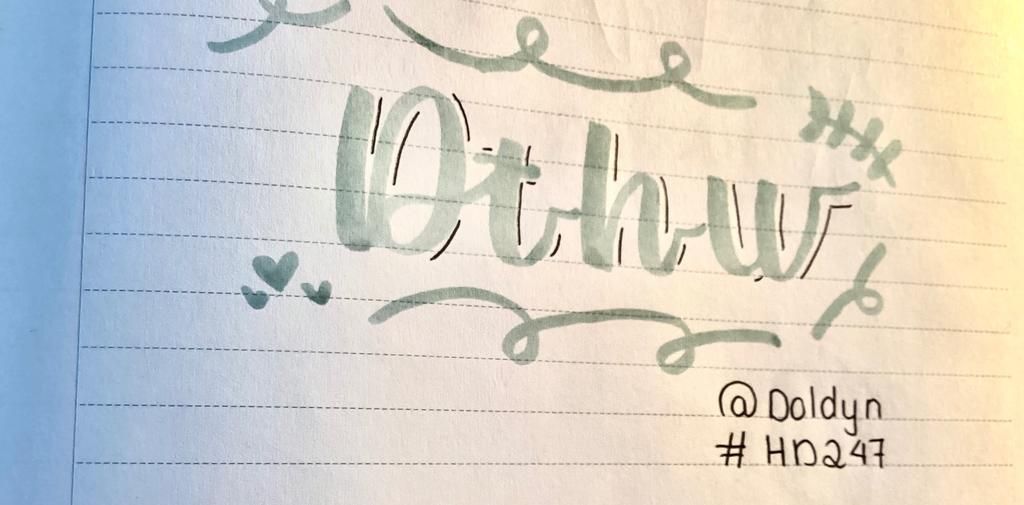 Dthw
@Doldyn
#HD247